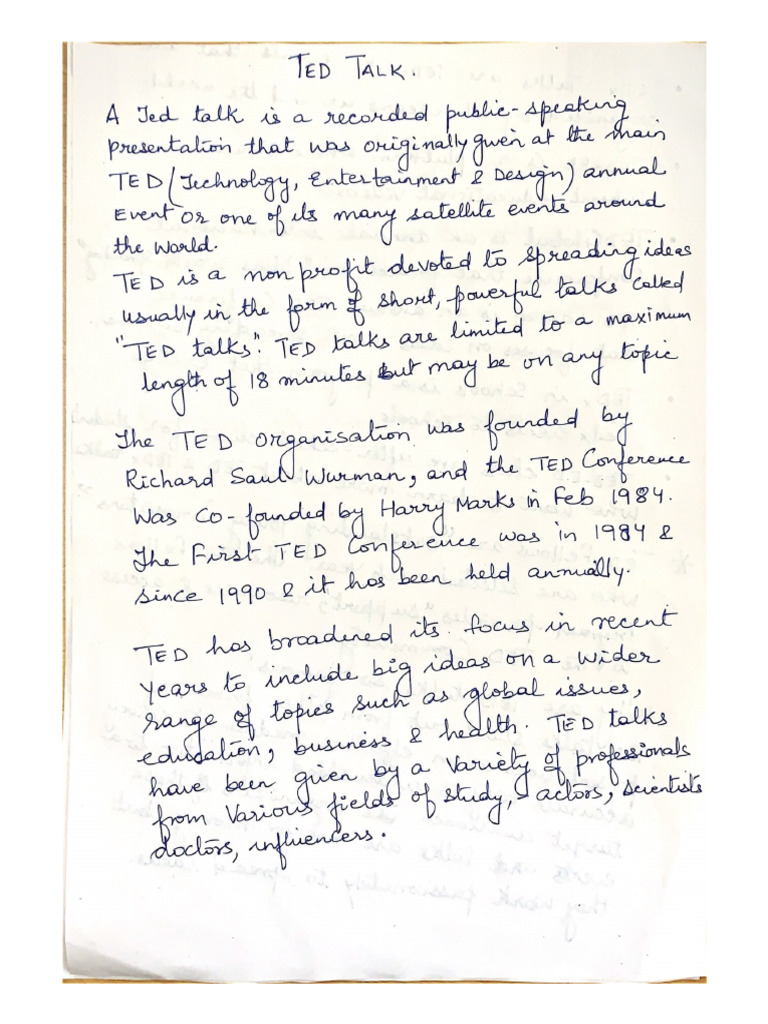 TED TALK.
A Ted talk is a recorded public-speaking
presentation that was originally given at the main
TED (Technology, Entertainment & Design) annual
Event or one of its many satellite events around
the world.
TED is a non profit devoted to spreading ideas
usually in the form of short, powerful talks called
"TED talks". TED talks are limited to a maximum
length of 18 minutes but may be on any topic
The TED organisation was founded by
Richard Saul Wurman, and the TED Conference
Was co-founded by Harry Marks in Feb 1984.
The First TED Conference was in 1984 &
since 1990 & it has been held annually.
TED has broadened its focus in recent
years to include big ideas on a wider
range of topics such as global issues,
education, business & health. TED talks
have been given by a variety of professionals
from various fields of study, - actors, scientists
doctors, influencers.